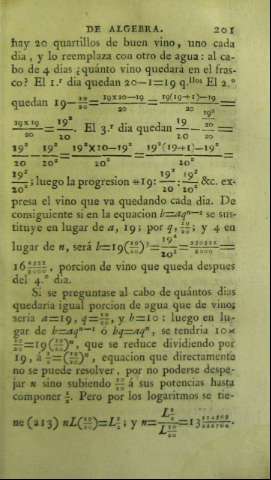 DE ALGEBRA. 201
hay 20 quartillos de buen vino, uno cada
dia, y lo reemplaza con otro de agua: al ca-
bo de 4 dias ¿quánto vino quedará en el fras-
co? El 1.r dia quedan 20—1=19 q.llos El 2.o
quedan 19—19/20=(19×20—19)/20=(19(19+1)—19)/20=
19×19/20=19²/20. El 3.r dia quedan 19²/20—
19²/20—19²/20²=(19²×20—19²)/20²=(19²(19+1)—19²)/20²=
; luego la progresion &c. ex-
presa el vino que va quedando cada dia. De
consiguiente si en la equacion b=aqⁿ⁻¹ se sus-
tituye en lugar de a, 19; por q, 19/20; y 4 en
lugar de n, será b=19(19/20)³=
16, porcion de vino que queda despues
del 4.o dia.
Si se preguntase al cabo de quántos dias
quedaria igual porcion de agua que de vino;
seria a=19, q=19/20, y b=10: luego en lu-
gar de b=aqⁿ⁻¹ ó bq=aqⁿ, se tendria 10×
19/20=19(19/20)ⁿ, que se reduce dividiendo por
19, á =(19/20)ⁿ, equacion que directamente
no se puede resolver, por no poderse despe-
jar n sino subiendo 19/20 á sus potencias hasta
componer. Pero por los logaritmos se tie-
ne (213) ; y n=